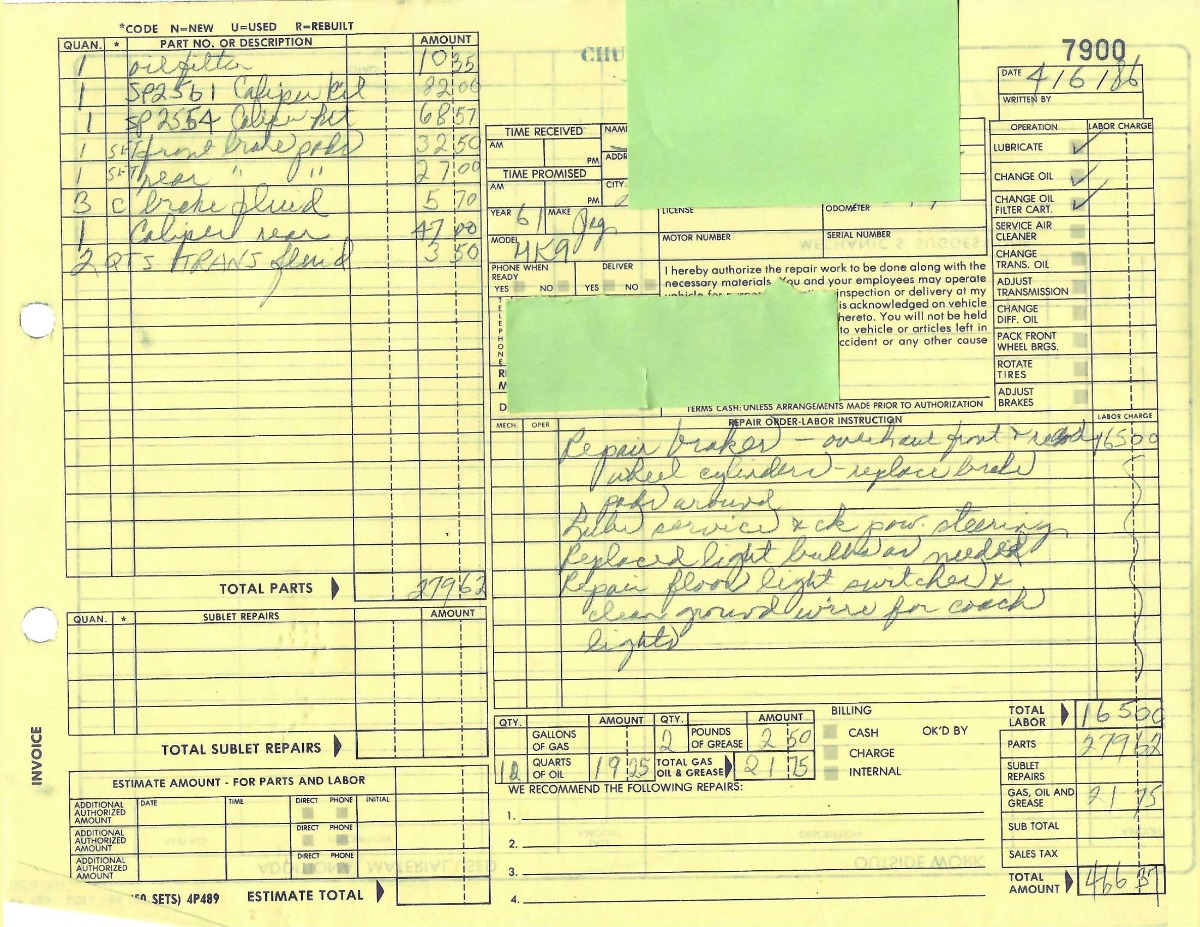 *CODE N=NEW U=USED R=REBUILT
QUAN. * PART NO. OR DESCRIPTION AMOUNT
1 oil filter 10 35
1 SP2561 Caliper Kit 82 00
1 SP2554 Caliper Kit 68 57
1 SET front brake pads 32 50
1 SET rear " " 27 00
3 C brake fluid 5 70
1 Caliper rear 47 00
2 QTS TRANS fluid 3 50
TOTAL PARTS 279 62
QUAN. * SUBLET REPAIRS AMOUNT
TOTAL SUBLET REPAIRS
INVOICE
ESTIMATE AMOUNT - FOR PARTS AND LABOR
ADDITIONAL AUTHORIZED AMOUNT DATE TIME DIRECT PHONE INITIAL
ADDITIONAL AUTHORIZED AMOUNT DIRECT PHONE
ADDITIONAL AUTHORIZED AMOUNT DIRECT PHONE
SETS) 4P489 ESTIMATE TOTAL
CHU
7900
DATE 4/6/86
WRITTEN BY
TIME RECEIVED
AM PM
TIME PROMISED
AM PM
CITY
YEAR 61 MAKE Jag LICENSE ODOMETER
MODEL MK9 MOTOR NUMBER SERIAL NUMBER
PHONE WHEN READY DELIVER
YES NO YES NO
TELEPHONE
I hereby authorize the repair work to be done along with the
necessary materials. You and your employees may operate
vehicle for inspection or delivery at my
is acknowledged on vehicle
hereto. You will not be held
to vehicle or articles left in
ccident or any other cause
TERMS CASH: UNLESS ARRANGEMENTS MADE PRIOR TO AUTHORIZATION
OPERATION LABOR CHARGE
LUBRICATE ✓
CHANGE OIL ✓
CHANGE OIL FILTER CART. ✓
SERVICE AIR CLEANER
CHANGE TRANS. OIL
ADJUST TRANSMISSION
CHANGE DIFF. OIL
PACK FRONT WHEEL BRGS.
ROTATE TIRES
ADJUST BRAKES
MECH. OPER REPAIR ORDER-LABOR INSTRUCTION LABOR CHARGE
Repair brakes - overhaul front & rear 165 00
wheel cylinders - replace brake
pads around
Lube service & ck pow. steering
Replaced light bulbs as needed
Repair floor light switches &
clean ground wire for coach
lights
QTY. AMOUNT QTY. AMOUNT
GALLONS OF GAS 2 POUNDS OF GREASE 2 50
12 QUARTS OF OIL 19 25 TOTAL GAS OIL & GREASE 21 75
BILLING
CASH OK'D BY
CHARGE
INTERNAL
WE RECOMMEND THE FOLLOWING REPAIRS:
1.
2.
3.
4.
TOTAL LABOR 165 00
PARTS 279 62
SUBLET REPAIRS
GAS, OIL AND GREASE 21 75
SUB TOTAL
SALES TAX
TOTAL AMOUNT 466 37